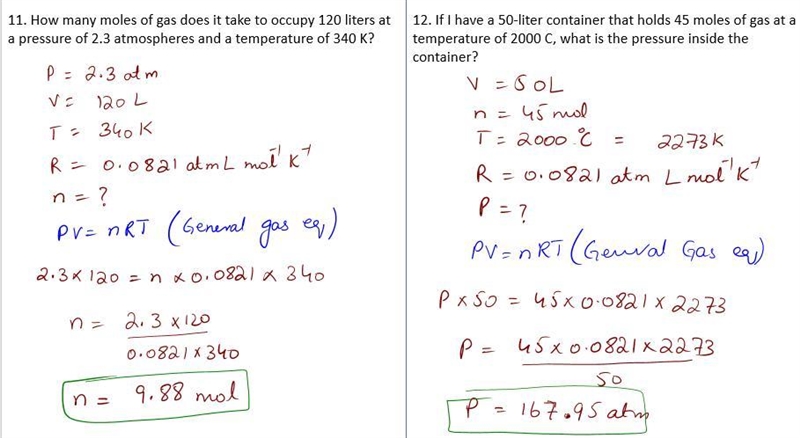 11. How many moles of gas does it take to occupy 120 liters at
a pressure of 2.3 atmospheres and a temperature of 340 K?
P = 2.3 atm
V = 120 L
T = 340 K
R = 0.0821 atm L mol⁻¹ K⁻¹
n = ?
PV = nRT (General gas eq)
2.3 x 120 = n x 0.0821 x 340
n = 2.3 x 120
0.0821 x 340
n = 9.88 mol
12. If I have a 50-liter container that holds 45 moles of gas at a
temperature of 2000 C, what is the pressure inside the
container?
V = 50L
n = 45 mol
T = 2000 °C = 2273 K
R = 0.0821 atm L mol⁻¹ K⁻¹
P = ?
PV = nRT (General Gas eq)
P x 50 = 45 x 0.0821 x 2273
P = 45 x 0.0821 x 2273
50
P = 167.95 atm